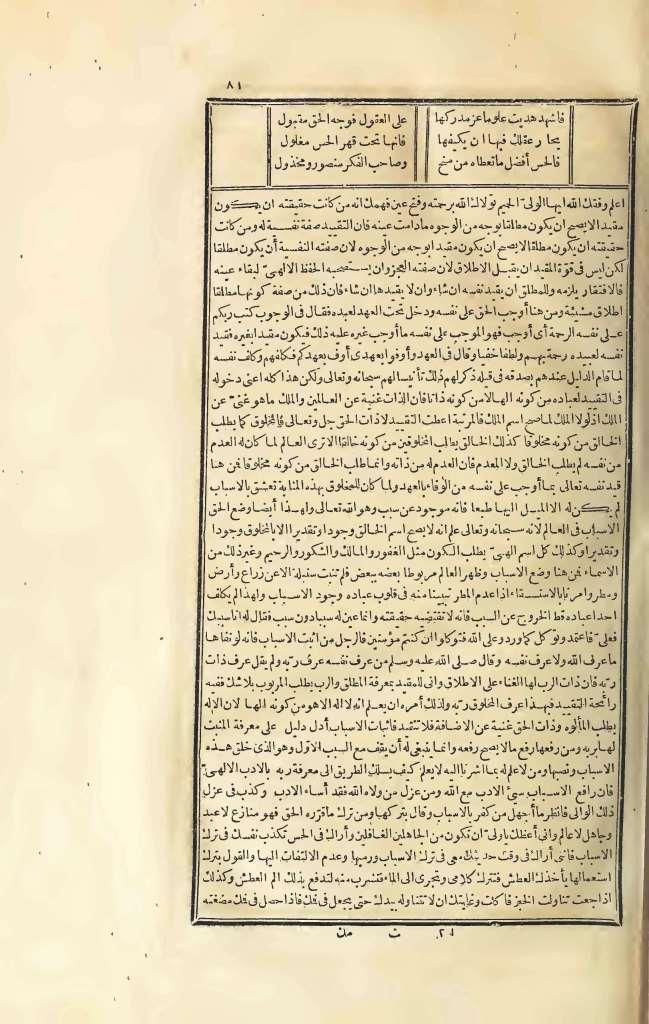 ٨١
فاشهد هديت علوما عز مدركها على العقول فوجه الحق مقبول
يحار عقلك فيها ان يكيفها فانها تحت قهر الحس مغلول
فالحس أفضل ما تعطاه من منح وصاحب الفكر منصور ومخذول
اعلم وفقك الله ايها الولىّ الحميم تولاك الله برحمته وفتح عين فهمك انه من كانت حقيقته ان يكون
مقيد الا يصح ان يكون مطلقا بوجه من الوجوه مادامت عينه فان التقييد صفة نفسية له ومن كانت
حقيقته ان يكون مطلقا لا يصح ان يكون مقيد ابوجه من الوجوه لان صفته النفسية أن يكون مطلقا
لكن ليس فى قوة المقيد ان يقبل الاطلاق لان صفته العجز وان يستصحبه الحفظ الالهىّ لبقاء عينه
فالافتقار يلزمه وللمطلق ان يقيد نفسه ان شاء وان لا يقيدها ان شاء فان ذلك من صفة كونه مطلقا
اطلاق مشيئة ومن هنا أوجب الحق على نفسه ودخل تحت العهد لعبده فقال فى الوجوب كتب ربكم
على نفسه الرحمة أى أوجب فهو الموجب على نفسه ما أوجب غيره عليه ذلك فيكون مقيد ابغيره فقيد
نفسه لعبيده رحمة بهم ولطفا خفيا وقال فى العهد وأوفوا بعهدى أوف بعهدكم فكلفهم وكلف نفسه
لما قام الدليل عندهم بصدقه فى قيله ذكر لهم ذلك تأنيسا لهم سبحانه وتعالى ولكن هذا كله اعنى دخوله
فى التقييد لعباده من كونه الها لا من كونه ذاتا فان الذات غنية عن العالمين والملك ما هو غنىّ عن
الملك اذ لولا الملك لما صح اسم الملك فالمرتبة اعطت التقييد لا ذات الحق جل وتعالى فالمخلوق كما يطلب
الخالق من كونه مخلوقا كذلك الخالق يطلب المخلوقين من كونه خالقا الا ترى العالم لما كان له العدم
من نفسه لم يطلب الخالق ولا المعدم فان العدم له من ذاته وانما طلب الخالق من كونه مخلوقا فمن هنا
قيد نفسه تعالى بما أوجب على نفسه من الوفاء بالعهد ولما كان للمخلوق بهذه المثابة تعشق بالاسباب
لم يكن له الا الميل اليها طبعا فانه موجود عن سبب وهو الله تعالى ولهذا أيضا وضع الحق
الاسباب فى العالم لانه سبحانه وتعالى علم انه لا يصح اسم الخالق وجودا وتقدير الا بالمخلوق وجودا
وتقديرا وكذلك كل اسم الهىّ يطلب الكون مثل الغفور والمالك والشكور والرحيم وغير ذلك من
الاسماء فمن هنا وضع الاسباب وظهر العالم مربوطا بعضه ببعض فلم تنبت سنبلة الا عن زراع وأرض
ومطر وامرنا بالاستسقاء اذا عدم المطر تثبيتا منه فى قلوب عباده وجود الاسباب ولهذا لم يكلف
احدا عباده قط الخروج عن السبب فانه لا تقتضيه حقيقته وانما عين له سببا دون سبب فقال له انا سببك
فعلىّ فاعتمد وتوكل كما ورد وعلى الله فتوكلوا ان كنتم مؤمنين فالرجل من اثبت الاسباب فانه لو نفاها
ما عرف الله ولا عرف نفسه وقال صلى الله عليه وسلم من عرف نفسه عرف ربه ولم يقل عرف ذات
ربه فان ذات الرب لها الغناء على الاطلاق وانى للمقيد بمعرفة المطلق والرب يطلب المربوب بلا شك ففيه
رائحة التقييد فبهذا عرف المخلوق ربه ولذلك أمره ان يعلم انه لا اله الا هو من كونه الها لان الاله
يطلب المألوه وذات الحق غنية عن الاضافة فلا تتقيد فاثبات الاسباب أدل دليل على معرفة المثبت
لها بربه ومن رفعها رفع ما لا يصح رفعه وانما ينبغى له أن يقف مع السبب الاول وهو الذى خلق هذه
الاسباب ونصبها ومن لا علم له بما اشرنا اليه لا يعلم كيف يسلك الطريق الى معرفة ربه بالادب الالهىّ
فان رافع الاسباب سىّء الادب مع الله ومن عزل من ولاه الله فقد أساء الادب وكذب فى عزل
ذلك الوالى فانظر ما أجهل من كفر بالاسباب وقال بتركها ومن ترك ما قرّره الحق فهو منازع لا عبد
وجاهل لا عالم وانى أعظك يا ولىّ ان تكون من الجاهلين الغافلين وأراك فى الحس تكذب نفسك فى ترك
الاسباب فانى أراك فى وقت حديثك معى فى ترك الاسباب ورميها وعدم الالتفات اليها والقول بترك
استعمالها يأخذك العطش فتترك كلامى وتجرى الى الماء فتشرب منه لتدفع بذلك الم العطش وكذلك
اذا جعت تناولت الخبز فاكلت وغايتك ان لا تتناوله بيدك حتى يجعل فى فمك فاذا حصل فى فمك مضغته
٢١ ت مك